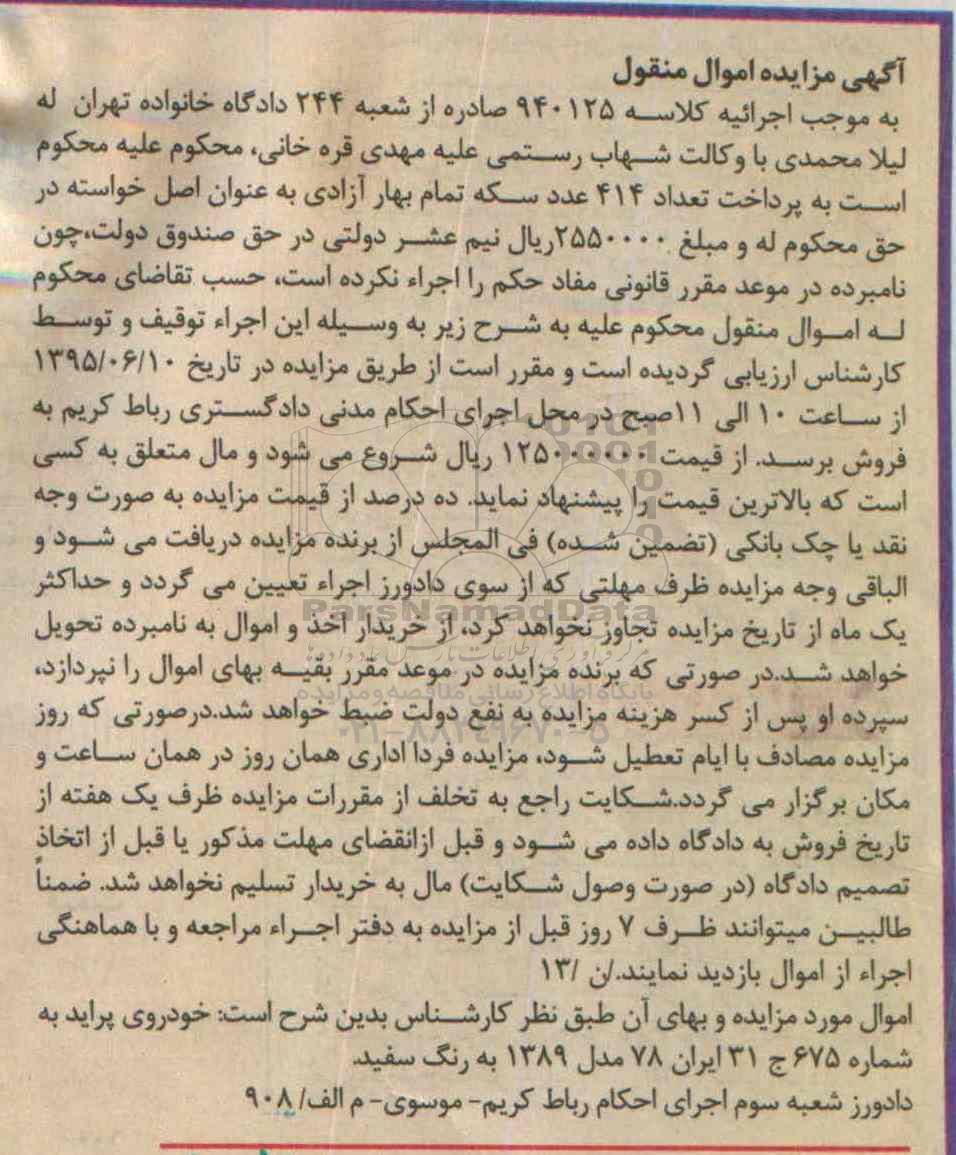 آگهی مزایده اموال منقول
به موجب اجرائیه کلاسه ۹۴۰۱۲۵ صادره از شعبه ۲۴۴ دادگاه خانواده تهران له
لیلا محمدی با وکالت شهاب رستمی علیه مهدی قره خانی، محکوم علیه محکوم
است به پرداخت تعداد ۴۱۴ عدد سکه تمام بهار آزادی به عنوان اصل خواسته در
حق محکوم له و مبلغ ۲۵۵۰۰۰۰ریال نیم عشر دولتی در حق صندوق دولت،چون
نامبرده در موعد مقرر قانونی مفاد حکم را اجراء نکرده است، حسب تقاضای محکوم
له اموال منقول محکوم علیه به شرح زیر به وسیله این اجراء توقیف و توسط
کارشناس ارزیابی گردیده است و مقرر است از طریق مزایده در تاریخ ۱۳۹۵/۰۶/۱۰
از ساعت ۱۰ الی ۱۱صبح در محل اجرای احکام مدنی دادگستری رباط کریم به
فروش برسد. از قیمت ۱۲۵۰۰۰۰۰۰ ریال شروع می شود و مال متعلق به کسی
است که بالاترین قیمت را پیشنهاد نماید. ده درصد از قیمت مزایده به صورت وجه
نقد یا چک بانکی (تضمین شده) فی المجلس از برنده مزایده دریافت می شود و
الباقی وجه مزایده ظرف مهلتی که از سوی دادورز اجراء تعیین می گردد و حداکثر
یک ماه از تاریخ مزایده تجاوز نخواهد کرد، از خریدار اخذ و اموال به نامبرده تحویل
خواهد شد.در صورتی که برنده مزایده در موعد مقرر بقیه بهای اموال را نپردازد،
سپرده او پس از کسر هزینه مزایده به نفع دولت ضبط خواهد شد.درصورتی که روز
مزایده مصادف با ایام تعطیل شود، مزایده فردا اداری همان روز در همان ساعت و
مکان برگزار می گردد.شکایت راجع به تخلف از مقررات مزایده ظرف یک هفته از
تاریخ فروش به دادگاه داده می شود و قبل ازانقضای مهلت مذکور یا قبل از اتخاذ
تصمیم دادگاه (در صورت وصول شکایت) مال به خریدار تسلیم نخواهد شد. ضمناً
طالبین میتوانند ظرف ۷ روز قبل از مزایده به دفتر اجراء مراجعه و با هماهنگی
اجراء از اموال بازدید نمایند./ن /۱۳
اموال مورد مزایده و بهای آن طبق نظر کارشناس بدین شرح است: خودروی پراید به
شماره ۶۷۵ ج ۳۱ ایران ۷۸ مدل ۱۳۸۹ به رنگ سفید.
دادورز شعبه سوم اجرای احکام رباط کریم- موسوی- م الف/ ۹۰۸
ParsNamadData
پایگاه اطلاع رسانی مناقصه و مزایده
۰۲۱-۸۸۳۴۹۶۷۰-۵